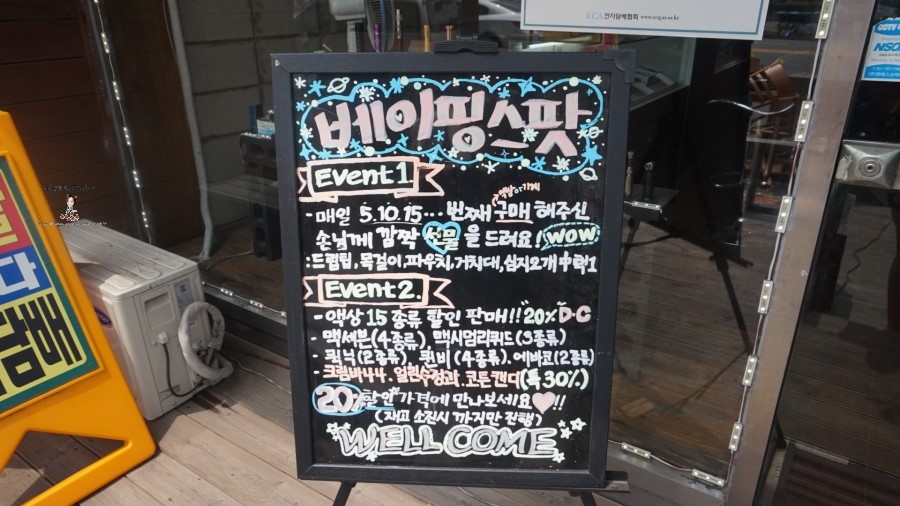 ECA 전자담배협회 www.ecigar.or.kr
베이핑스팟
Event 1
- 매일 5.10.15... 번째 구매 해주신
손님께 깜짝 선물을 드려요! WOW
: 드립팁, 목걸이, 파우치, 거치대, 심지2개 中 택1
Event 2.
- 액상 15종류 할인 판매!! 20% D·C
- 맥세븐(4종류), 맥시멈리퀴드(3종류)
- 퀵닉(2종류), 퀸비(4종류), 에바코(2종류)
- 크림바44. 얼린수정과. 코튼캔디(특30%)
20% 할인 가격에 만나보세요♥!!
(재고 소진시 까지만 진행)
WELL COME
담배
CCTV
NSO